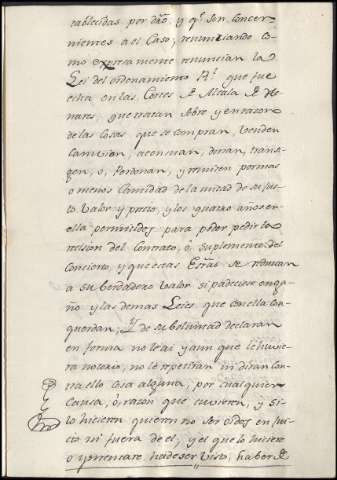 tablecidas por dro, y qe. son concer
nientes a el Caso, renunciando co
mo expresamente renuncian la
Lei del ordenamiento Rl. que fue
echa en las Cortes de Alcala de He
nares, que tratan sobre y en razon
de las Cosas que se compran, venden
Cambian, acensuan, donan, transi
gen, o, Perdonan, y remiten por mas
o menos Cantidad de la mitad de su jus
to Valor y precio, y los quatro años en
ella permitidos para poder pedir la
recision del Contrato, ó suplemento del
Concierto, y que estas Essras se reduzcan
a su berdadero valor si padeciese enga
ño y las demas Leies que con ella con
querdan; Y de su boluntad declaran
en forma no le ai y aun que le huviera
notorio, no le repetiran ni diran con
tra ello cosa alguna, por cualquier
Causa, ó razon que tuvieren, y si
lo hicieren quieren no ser oidos en jui
cio ni fuera de el, y el que lo hiciere
o yntentare ha de ser visto, haber